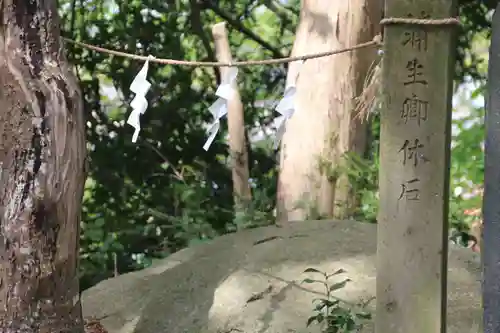 蒲生卿休石